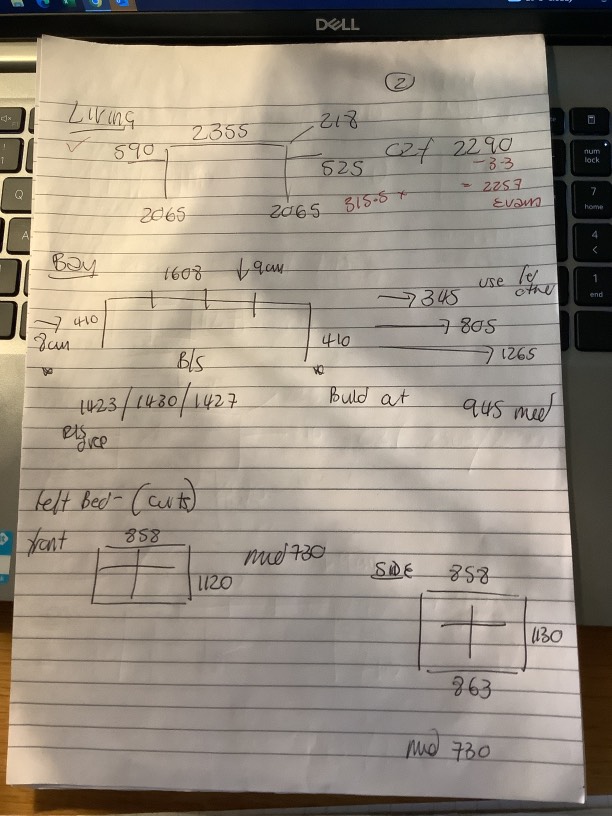 DELL
2
Living
2355
218
590
525
c2f 2290
-33
= 2257
Evans
2065
2065
315.5 +
Bay
1608
9cm
345
use for other
410
8cm
805
410
B/S
1265
1423/1430/1427
Build at
945 med
Left Bed - (cuts)
front
858
mid 730
1120
SIDE
858
1130
863
mid 730
num lock
7
home
4
1
end
Q
A